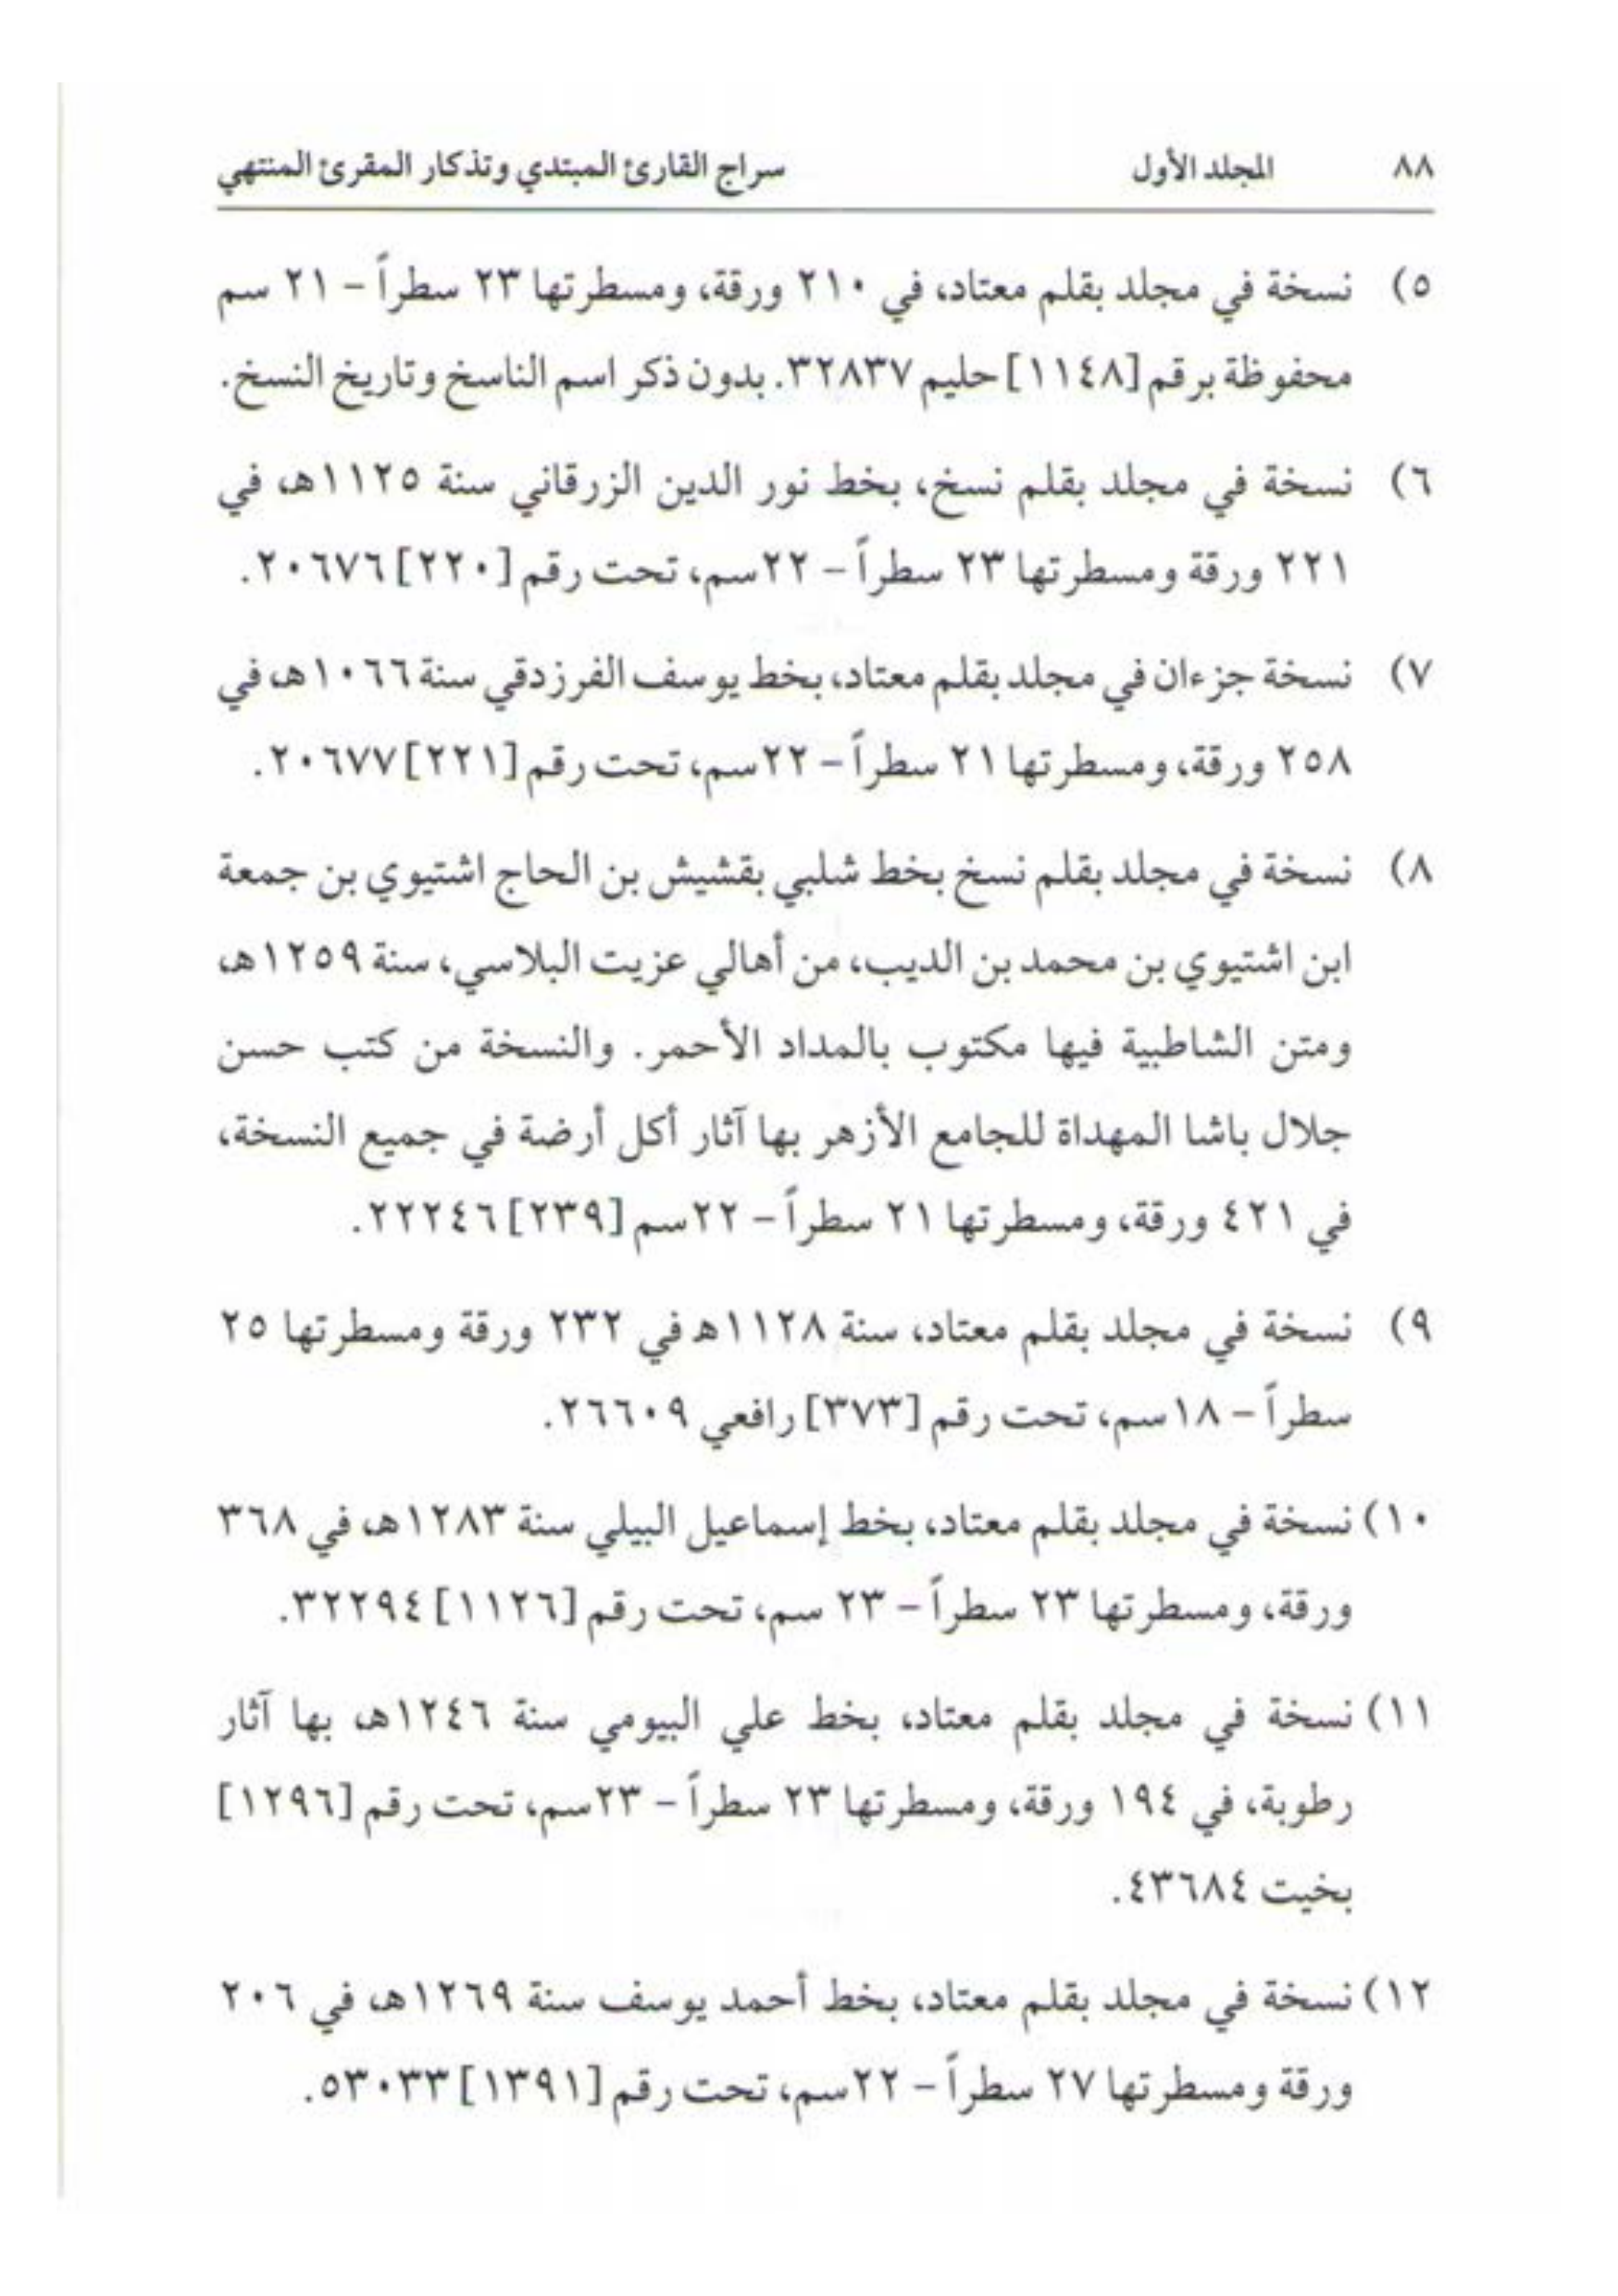 ٨٨ المجلد الأول سراج القارئ المبتدي وتذكار المقرئ المنتهي
٥) نسخة في مجلد بقلم معتاد، في ٢١٠ ورقة، ومسطرتها ٢٣ سطراً – ٢١ سم
محفوظة برقم [١١٤٨] حليم ٣٢٨٣٧. بدون ذكر اسم الناسخ وتاريخ النسخ.
٦) نسخة في مجلد بقلم نسخ، بخط نور الدين الزرقاني سنة ١١٢٥هـ، في
٢٢١ ورقة ومسطرتها ٢٣ سطراً – ٢٢سم، تحت رقم [٢٢٠] ٢٠٦٧٦.
٧) نسخة جزءان في مجلد بقلم معتاد، بخط يوسف الفرزدقي سنة ١٠٦٦هـ، في
٢٥٨ ورقة، ومسطرتها ٢١ سطراً – ٢٢سم، تحت رقم [٢٢١] ٢٠٦٧٧.
٨) نسخة في مجلد بقلم نسخ بخط شلبي بقشيش بن الحاج اشتيوي بن جمعة
ابن اشتيوي بن محمد بن الديب، من أهالي عزيت البلاسي، سنة ١٢٥٩هـ،
ومتن الشاطبية فيها مكتوب بالمداد الأحمر. والنسخة من كتب حسن
جلال باشا المهداة للجامع الأزهر بها آثار أكل أرضة في جميع النسخة،
في ٤٢١ ورقة، ومسطرتها ٢١ سطراً – ٢٢سم [٢٣٩] ٢٢٢٤٦.
٩) نسخة في مجلد بقلم معتاد، سنة ١١٢٨هـ في ٢٣٢ ورقة ومسطرتها ٢٥
سطراً – ١٨سم، تحت رقم [٣٧٣] رافعي ٢٦٦٠٩.
١٠) نسخة في مجلد بقلم معتاد، بخط إسماعيل البيلي سنة ١٢٨٣هـ، في ٣٦٨
ورقة، ومسطرتها ٢٣ سطراً – ٢٣ سم، تحت رقم [١١٢٦] ٣٢٢٩٤.
١١) نسخة في مجلد بقلم معتاد، بخط علي البيومي سنة ١٢٤٦هـ، بها آثار
رطوبة، في ١٩٤ ورقة، ومسطرتها ٢٣ سطراً – ٢٣سم، تحت رقم [١٢٩٦]
بخيت ٤٣٦٨٤.
١٢) نسخة في مجلد بقلم معتاد، بخط أحمد يوسف سنة ١٢٦٩هـ، في ٢٠٦
ورقة ومسطرتها ٢٧ سطراً – ٢٢سم، تحت رقم [١٣٩١] ٥٣٠٣٣.